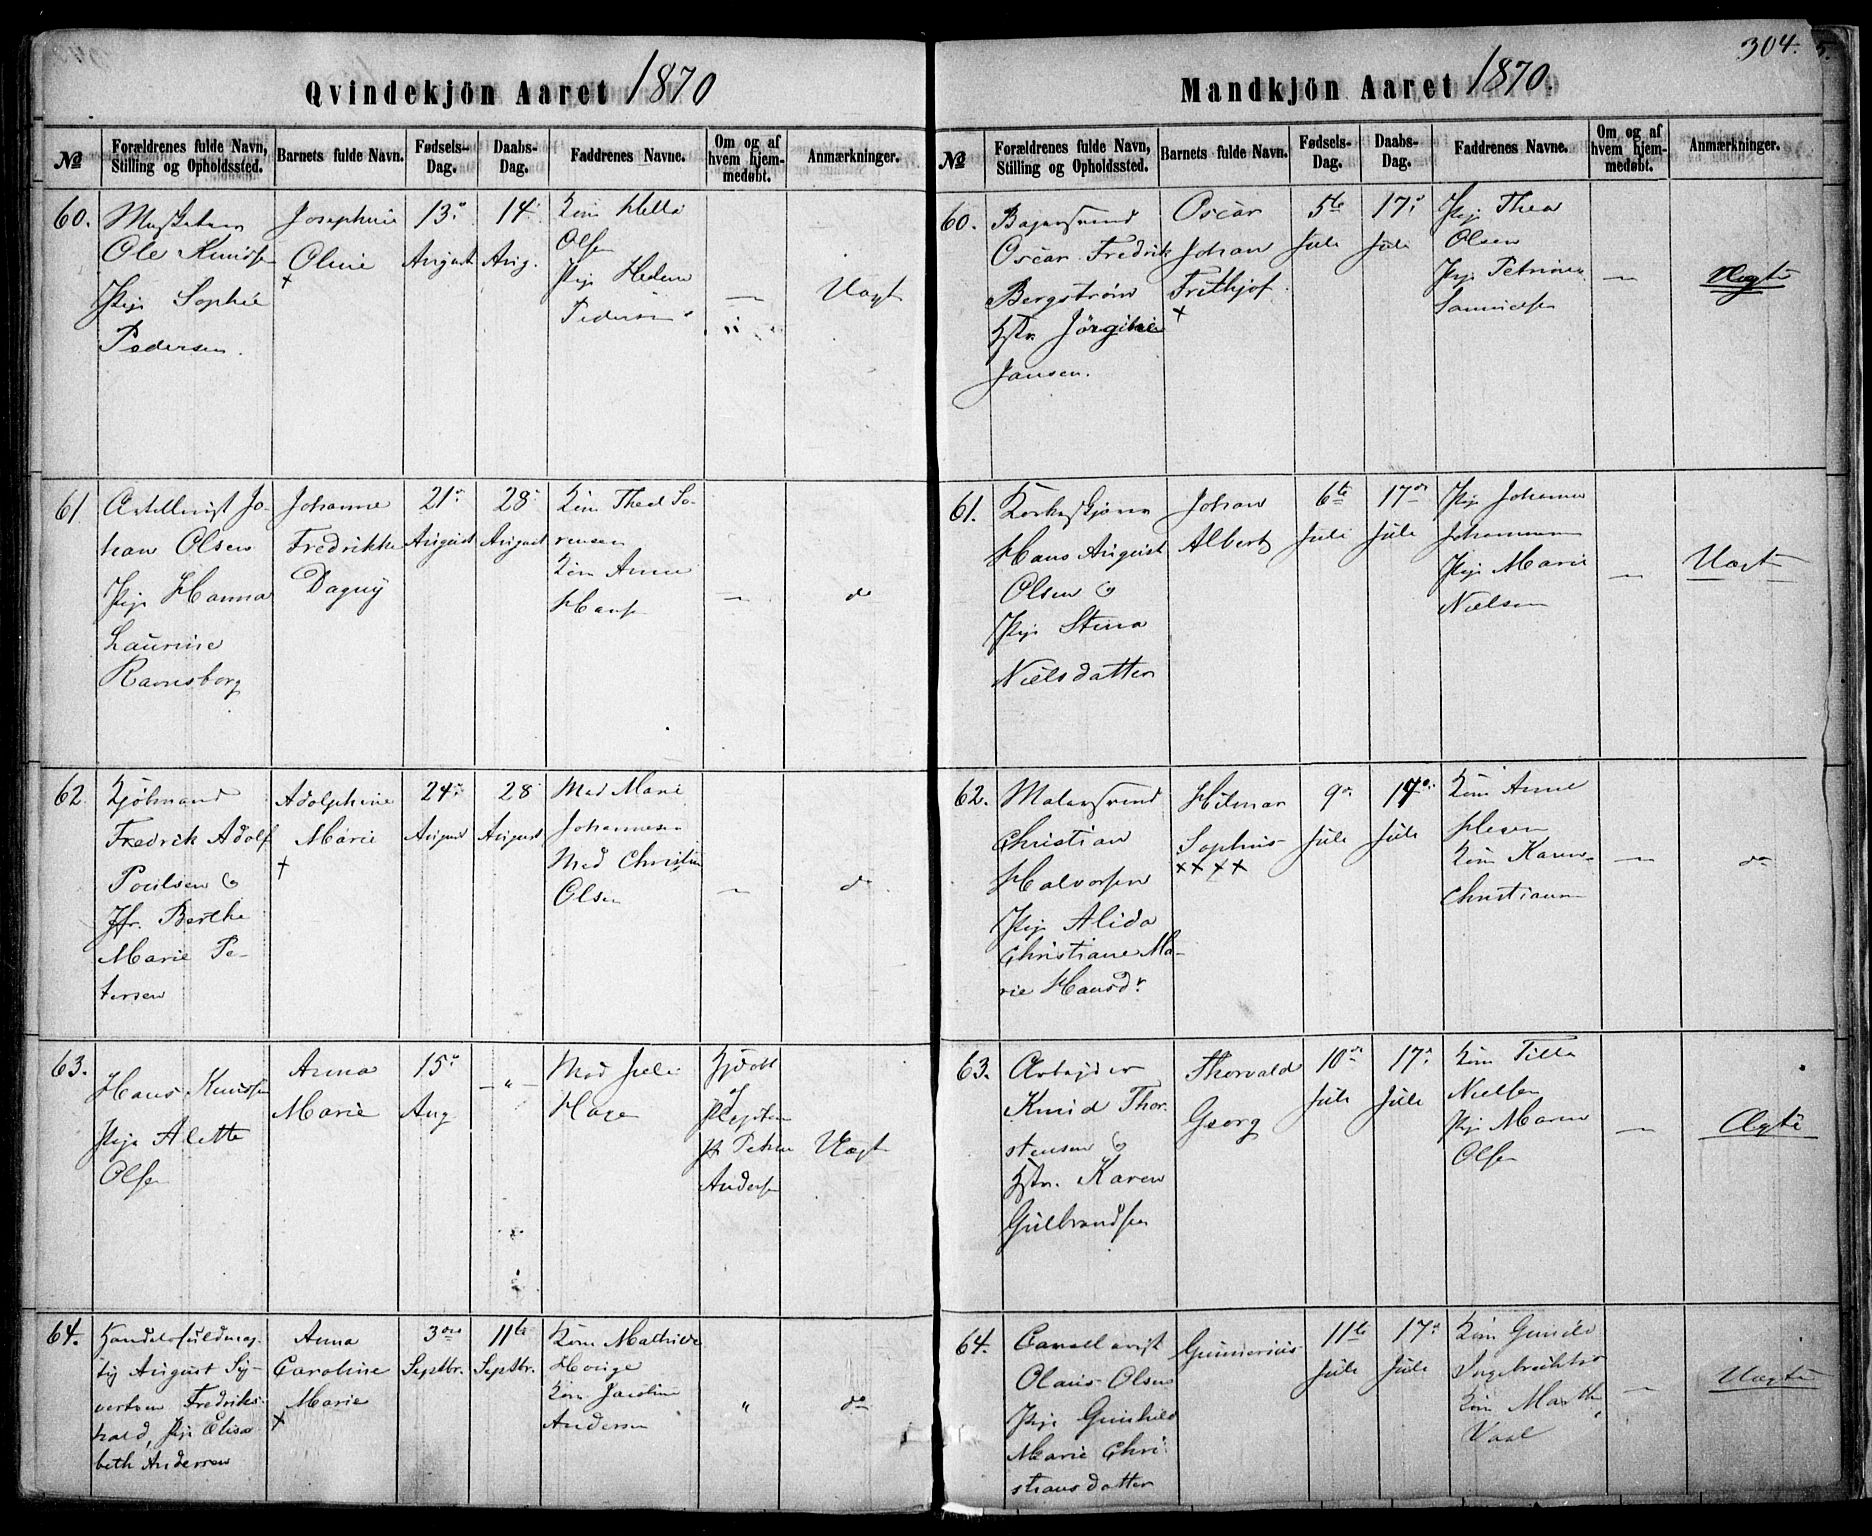 304.
5.
Qvindekjön Aaret 1870
№
Forældrenes fulde Navn, Stilling og Opholdssted.
Barnets fulde Navn.
Fødsels-Dag.
Daabs-Dag.
Faddrenes Navne.
Om og af hvem hjem-medøbt.
Anmærkninger.
60.
Musketeer
Ole Knudsen
Pige Sophie
Pedersen.
Josephine
Oline
+
13de
August
14
Aug.
Kone
Olsen
Pige Helene
Pedersen
—
Uægt
61
Artillerist Jo-
han Olsen
Pige Hanna
Laurine
Ravnsborg
Johanne
Fredrikke
Dagny
21de
August
28
August
Kone Thea So-
rensen
Kone Anne
Hansen
—
do
62.
Kjöbmand
Fredrik Adolf
Poulsen &
Jfr. Berthe
Marie Pe-
tersen
Adolphine
Marie
+
24de
August
28
August
Mad Marie
Johannesen
Mad Christine
Olsen
—
do
63.
Hans Knudsen
Pige Alette
Olsen
Anna
Marie
15de
Aug
— " —
Mad Juli
Hage
Hjdbt
af
Andersen
Uægt
64.
Handelsfuldmæg-
tig August Sy-
vertsen Fredriks-
hald, Pige Elisa
beth Andersen
Anna
Caroline
Marie
+
3die
Septbr.
11te
Septbr.
Kone Mathilde
Hovige
Kone Jacobine
Andersen
"
do
Mandkjön Aaret 1870.
№
Forældrenes fulde Navn, Stilling og Opholdssted.
Barnets fulde Navn.
Fødsels-Dag.
Daabs-Dag.
Faddrenes Navne.
Om og af hvem hjem-medøbt.
Anmærkninger.
60.
Bagersvend
Oscar Fredrik
Bergström
Hstr. Jörgine
Jansen.
Oscar
Johan
Frithjof
+
5te
Juli
17de
Juli
Pige Thea
Olsen
Pige Petrine
Samuelsen
—
Ægte
61.
Korkeskjærer
Hans August
Olsen &
Pige Stina
Nielsdatter
Johan
Albert
6te
Juli
17de
Juli
Pige Johanne
Johannesen
Pige Marie
Nielsen
—
Uægt
62.
Malersvend
Christian
Halvorsen
Pige Alida
Christiane Ma-
rie Hansdr
Hilmar
Sophus
++++
9de
Juli
17de
Juli
Kone Anne
Kone Karen
Christiansen
—
do
63.
Arbejder
Knud Thor-
stensen &
Hstr. Karen
Gulbrandsen
Thorvald
Georg
10de
Juli
17de
Juli
Kone Tilla
Nielsen
Pige Maren
Olsen
—
Ægte
64.
Cavallerist
Olaus Olsen
Pige Gunhild
Marie Chri-
stiansdatter
Gunnerius
11te
Juli
17de
Juli
Kone Gunild
Ingebrikts
Kone Marthe
Vaal
—
Uægte